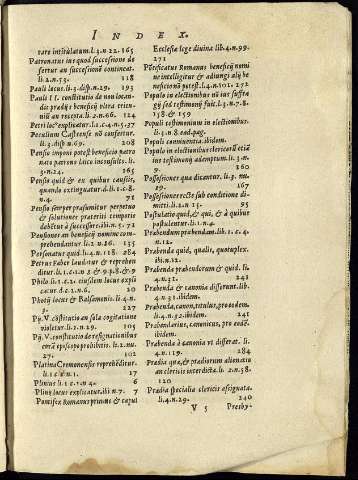 INDEX.
rare institulatum.l.3.n.22. 165
Patronatus ius quod successione de
fertur an successionū contineat.
li.2.n.53. 118
Pauli locus.li.3.disp.n.29. 193
Pauli II. constitutio de non locan-
dis prædijs beneficij vltra trien-
niū an recepta.li.2.n.66. 124
Petri loc⁹ explicatur.l.1.c.4.n.5. 37
Peculium Castrense nō confertur.
l.3.disp n.69. 208
Pensio imponi potest beneficio patro
natu patrono laico inconsulto. l.
3.n.22. 165
Pensio quid & ex quibus causis,
quando extinguatur.d.l.1.c.8.
n.4. 71
Pensio semper præsumitur perpetuo
& solutione præteriti temporis
debetur à successore.ibi n.5. 72
Pensiones an beneficij nomine com-
prehendantur.li.2.n.86. 135
Personatus quid.li.4.n.118. 284
Petrus Faber laudatur & reprehen
ditur.li.1.c.1.n.2 & 9.p.8.& 9
Philo.li.1.c.2. eiusdem locus expli
catur.d.c.1.n.6. 20
Photij locus & Balsamonis.li.4.n.
3. 218
Pij.V. cōstitutio an sola cogitatione
violetur.li.2.n.29. 105
Pij.V. constitutio de resignationibus
cōtrà episcopo prohibitis. li.2.nu.
27. 102
Platina Cremonensis reprehēditur.
li.1 c.1.n.1. 17
Plinius li.1 c.1.n.4. 6
Plinij locus explicatur.ibi n.7. 7
Pontifex Romanus primus & caput
Ecclesiæ lege diuina lib.4.n.99.
271
Pōtificatus Romanus beneficij nomi
ne intelligitur & adiungi alij be
neficio nō potest.l.4.n.101. 272
Populo in electionibus nō ius suffra
gij sed testimonij fuit.l.3.n.7.8.
158 & 159
Populi testimonium in electionibus
li.3.n.8.ead.pag.
Populi conniuentia.ibidem.
Populo in electionibus clericorū etiā
ius testimonij ademptum.li.3.n.
9. 160
Possessioner qua dicantur. li.3.nu.
29. 167
Possessione recte sub conditione di-
mitti.li.2.n 15. 95
Postulatio quid,& qui, & à quibus
postulentur.li.1.n.4.
Præbendam prohendum.lib.1.c.4.
n.12.
Præbenda quid, qualis, quotuplex.
ibi n.12.
Præbenda præbendarum & quid. li.
4.n.32. 241
Præbenda & canonia differunt. lib.
4 n.31.ibidem.
Præbenda,canon,titulus,pro eodem.
li.4.n.32. ibidem. 241
Præbendarius, canonicus, pro eodē.
ibidem.
Præbenda à canonia vt differat. li.
4.n.119. 284
Prædia quæ,& prædiorum alienatio
an clericis interdicta.li.2.n.58.
120
Prædia specialia clericis assignata.
li.4.n.29. 240
V 5 Presby-